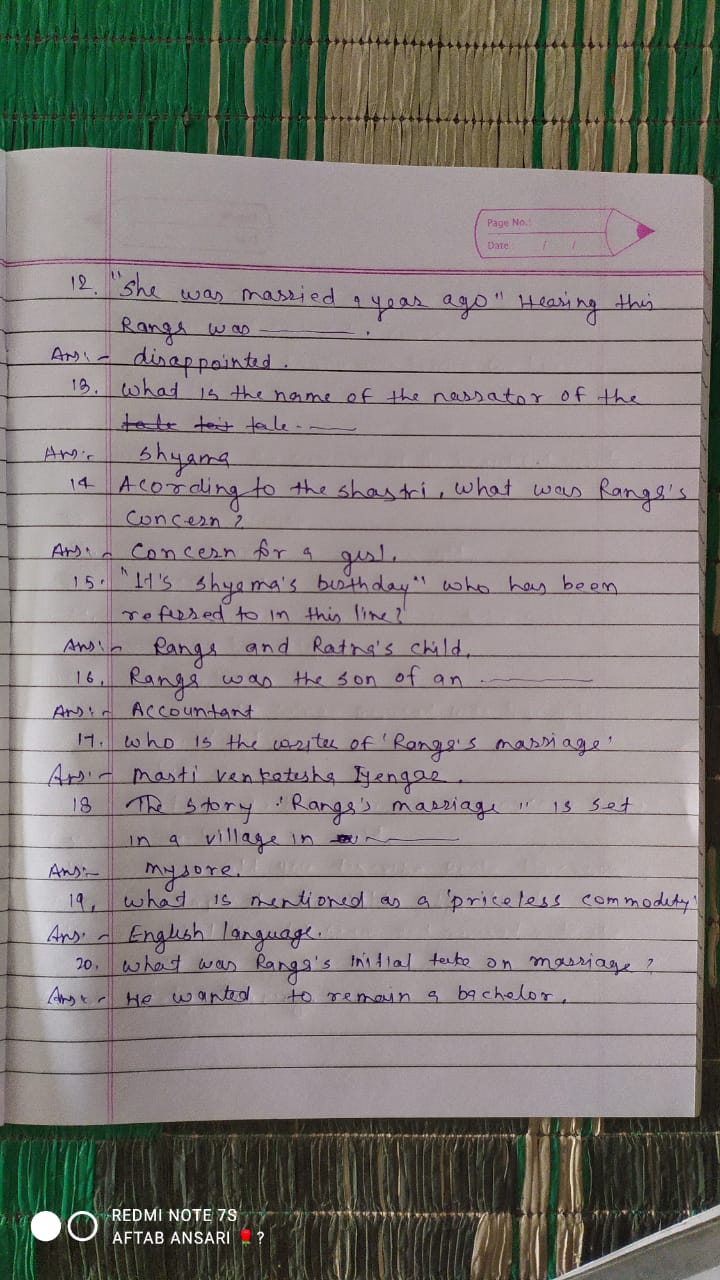 Page No.:
Date: / /
12. "She was married a year ago" Hearing this
Ranga was ______ .
Ans:- disappointed.
13. What is the name of the narrator of the
tale tei tale. ___
Ans:- Shyama
14 Acording to the shastri, what was Ranga's
Concern?
Ans:- Concern for a girl.
15. "It's Shyama's birthday" who has been
referred to in this line?
Ans:- Ranga and Ratna's child.
16. Ranga was the son of an ______
Ans:- Accountant
17. Who is the writer of 'Ranga's marriage'
Ans:- Masti Venkatesha Iyengar.
18 The Story "Ranga's marriage" is set
in a village in ______
Ans:- Mysore.
19. What is mentioned as a 'priceless commodity'
Ans:- English language.
20. What was Ranga's initial take on marriage?
Ans:- He wanted to remain a bachelor.
REDMI NOTE 7S
AFTAB ANSARI 🌹?